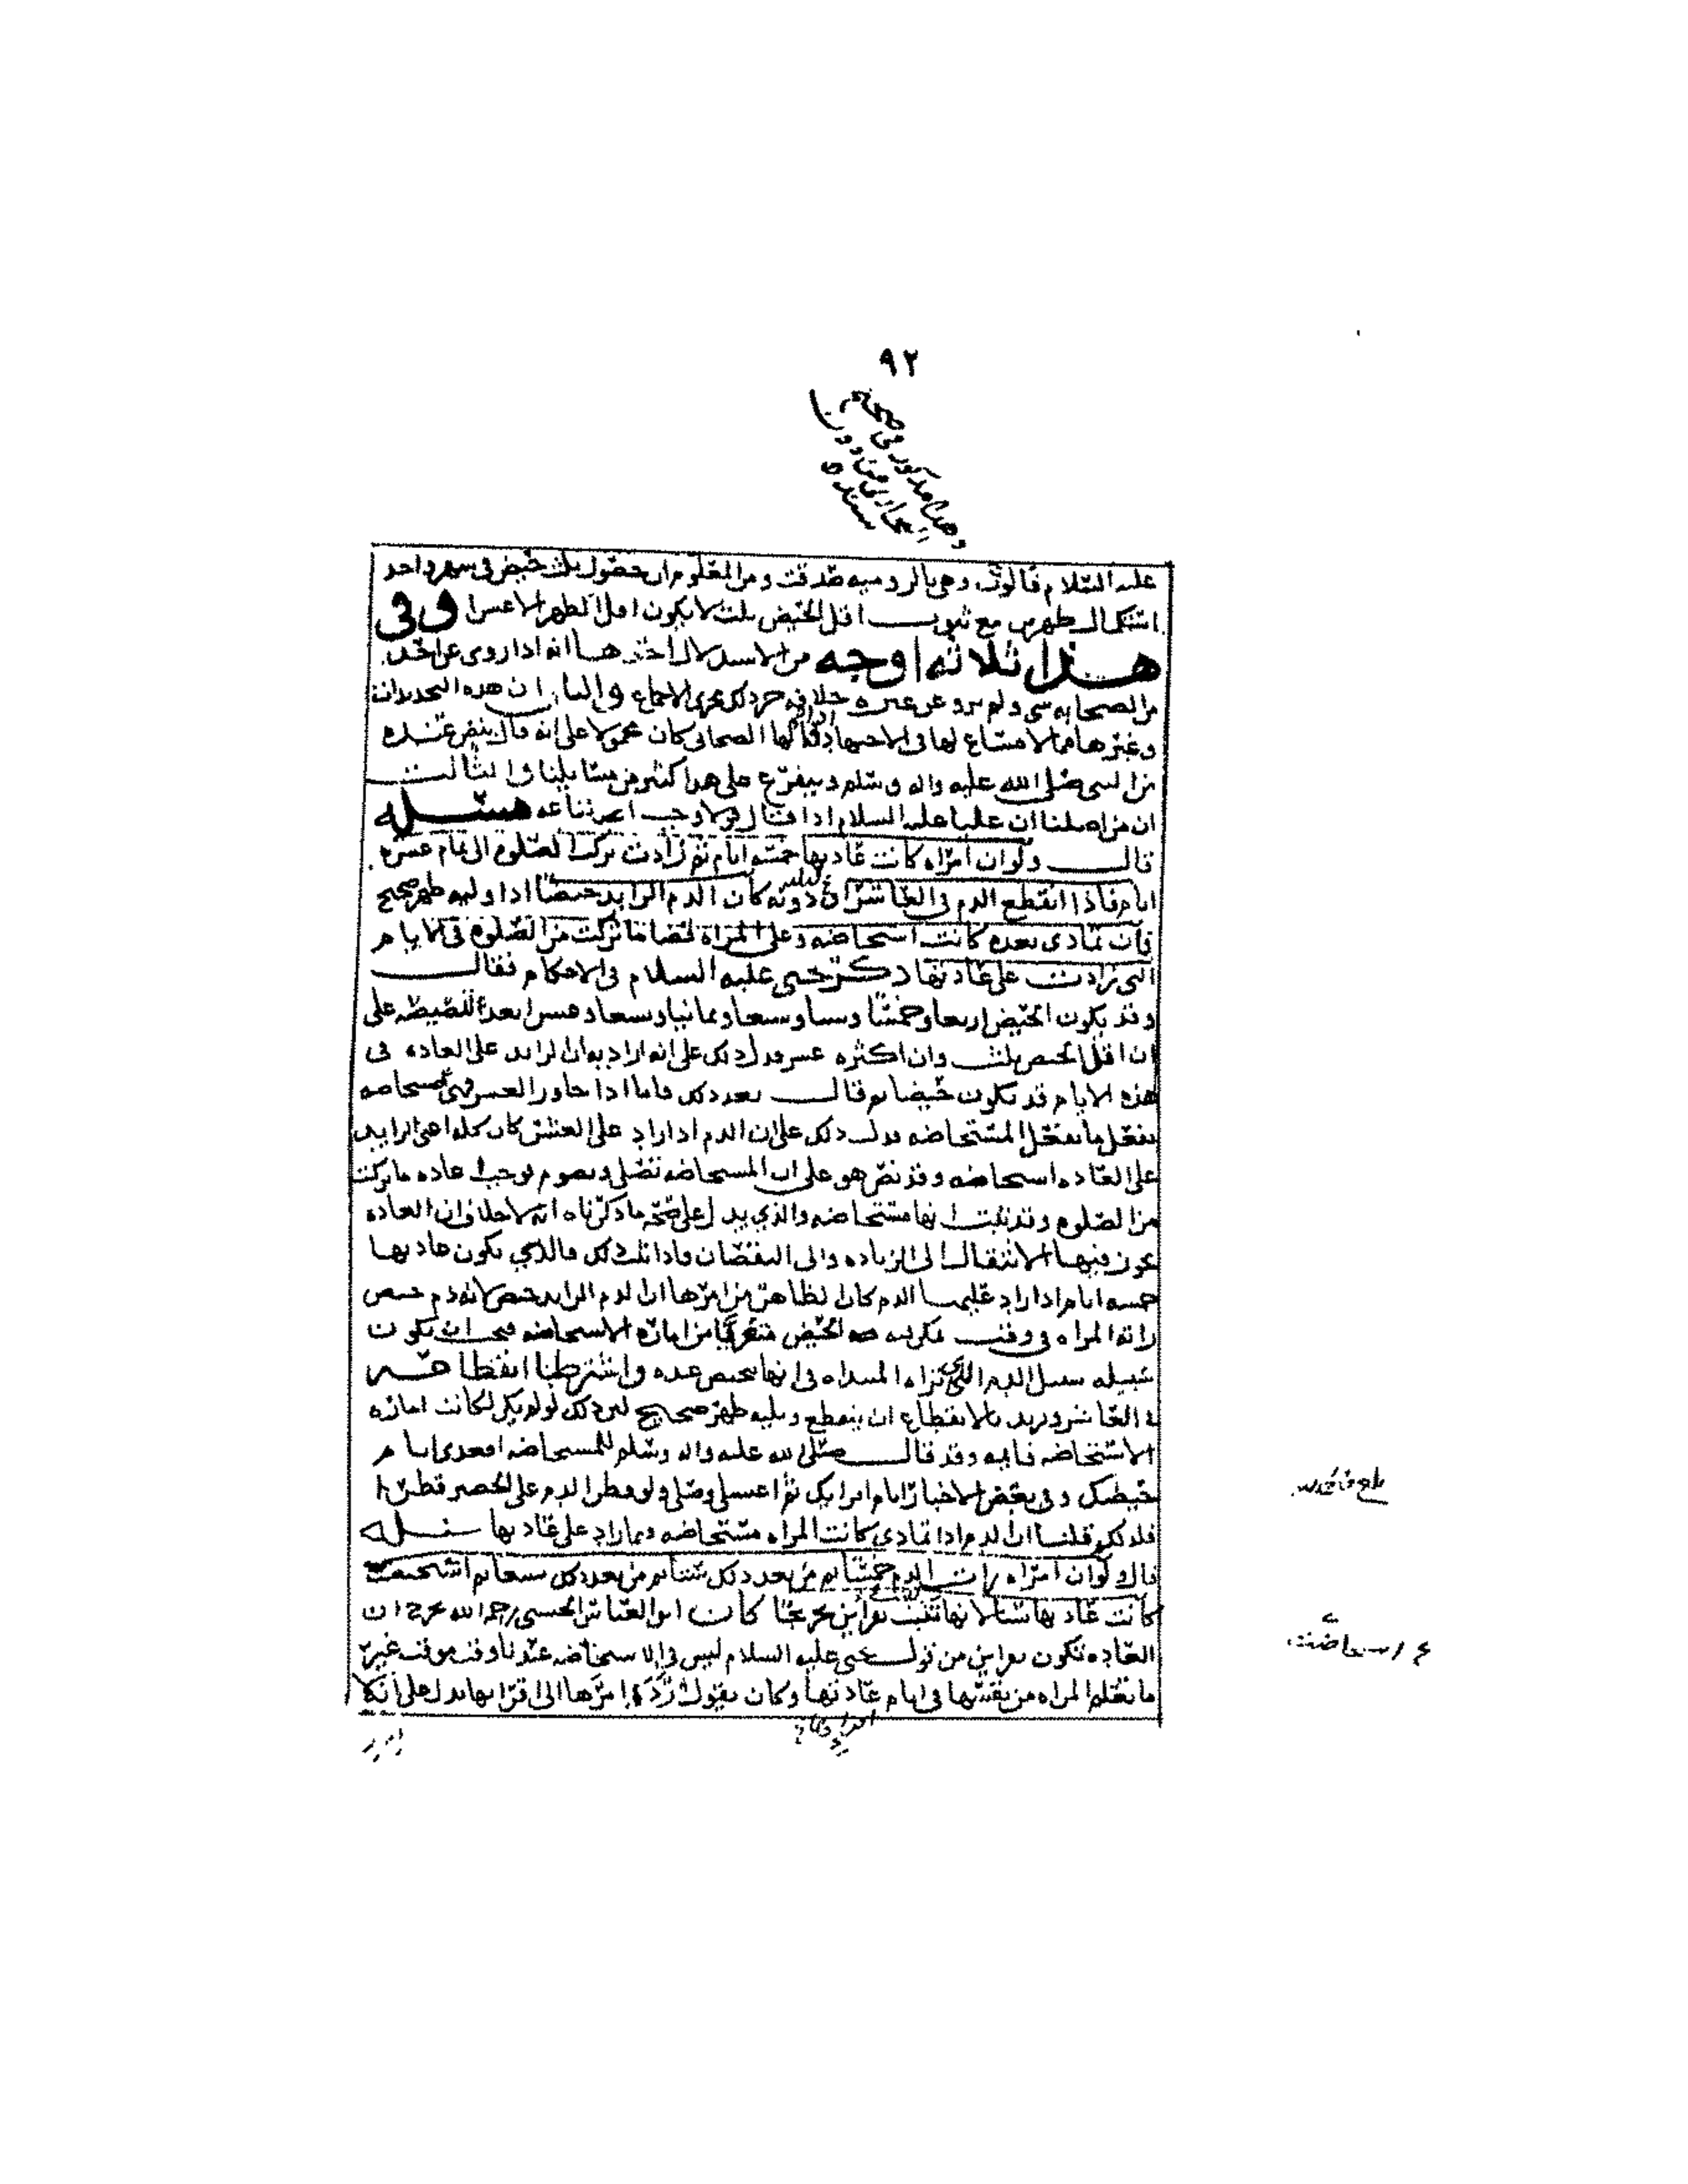 ٩٢
عليه السلام قالون وهي بالرومية صدقت ومن المعلوم ان حصول ثلث حيض في شهر واحد
استكمال طهرين مع ثبوت اقل الحيض ثلث لا يكون اقل الطهر الا عسرا وفي
هذا ثلاثة اوجه من الاستدلال احدها انه اذا روى عن احد
من الصحابه شي ولم يرو عن غيره خلافه جرى ذلك مجرى الاجماع والثاني ان هذه التحديدات
وغيرها مما لا مساغ لها في الاجتهاد اذا قالها الصحابي كان محمولا على انه قال بنص عنده
من النبي صلى الله عليه واله وسلم ويتفرع على هذا كثير من مسايلنا والثالث
ان من اصلنا ان عليا عليه السلام اذا قال قولا وجب اتباعه مسئله
قال ولو ان امراه كانت عادتها خمسة ايام ثم زادت تركت الصلوة الى تمام عسره
ايام فاذا انقطع الدم في العاشر او دونه كان الدم الزايد حيضا اذا وليه طهر صحيح
فان تمادى بعده كانت استحاضه وعلى المراه قضا ما تركت من الصلوة في الايام
التي زادت على عادتها ذكر يحيى عليه السلام في الاحكام فقال
وقد يكون الحيض اربعا وخمسا وستا وسبعا وثمانيا وتسعا وعسرا بعد تنصيصه على
ان اقل الحيض ثلث وان اكثره عسر فدل ذلك على انه اراد به ان الزايد على العاده في
هذه الايام قد يكون حيضا ثم قال بعد ذلك فاما اذا جاوز العسر فهي مستحاضه
تفعل ما تفعل المستحاضه فدل ذلك على ان الدم اذا زاد على العشر كان كله اعني الزايد
على العاده استحاضه وقد نص هو على ان المستحاضه تصلي وتصوم فوجب اعاده ما تركت
من الصلوة وقد ثبت انها مستحاضه والذي يدل على صحة ما ذكرناه انه لا خلاف ان العاده
يجوز فيها الانتقال الى الزياده والى النقصان فاذا ثبت ذلك فالذي يكون عادتها
خمسه ايام اذا زاد عليها الدم كان الظاهر من امرها ان الدم الزايد حيض لانه دم حيض
راته المراه في وقت يمكن فيه الحيض متعريا من امارة الاستحاضه فيجب ان يكون
سبيله سبيل الدم الذي تراه المراه في انها تحيض عنده واشترطنا انقطاعه
في العاشر ونريد بالانقطاع ان ينقطع ويليه طهر صحيح لان ذلك لو لم يكن لكانت امارة
الاستحاضه قايمه وقد قال صلى الله عليه واله وسلم للمستحاضه اقعدي ايام
حيضك وفي بعض الاخبار ايام اقرايك ثم اغتسلي وصلي ولو قطر الدم على الحصير قطرا
فلذلك قلنا ان الدم اذا تمادى كانت المراه مستحاضه فيما زاد على عادتها مسئله
قال ولو ان امراه رات الدم خمسا ثم من بعد ذلك ستا ثم من بعد ذلك سبعا ثم استحيضت
كانت عادتها ستا لانها تثبت بقراين تخريجا كان ابو العباس الحسني رحمه الله يخرج ان
العاده تكون بقراين من قول يحيى عليه السلام ليس في الاستحاضه عندنا وقت موقت غير
ما تعلم المراه من نفسها في ايام عادتها وكان يقول رد امرها الى اقرايها يدل على انها لا